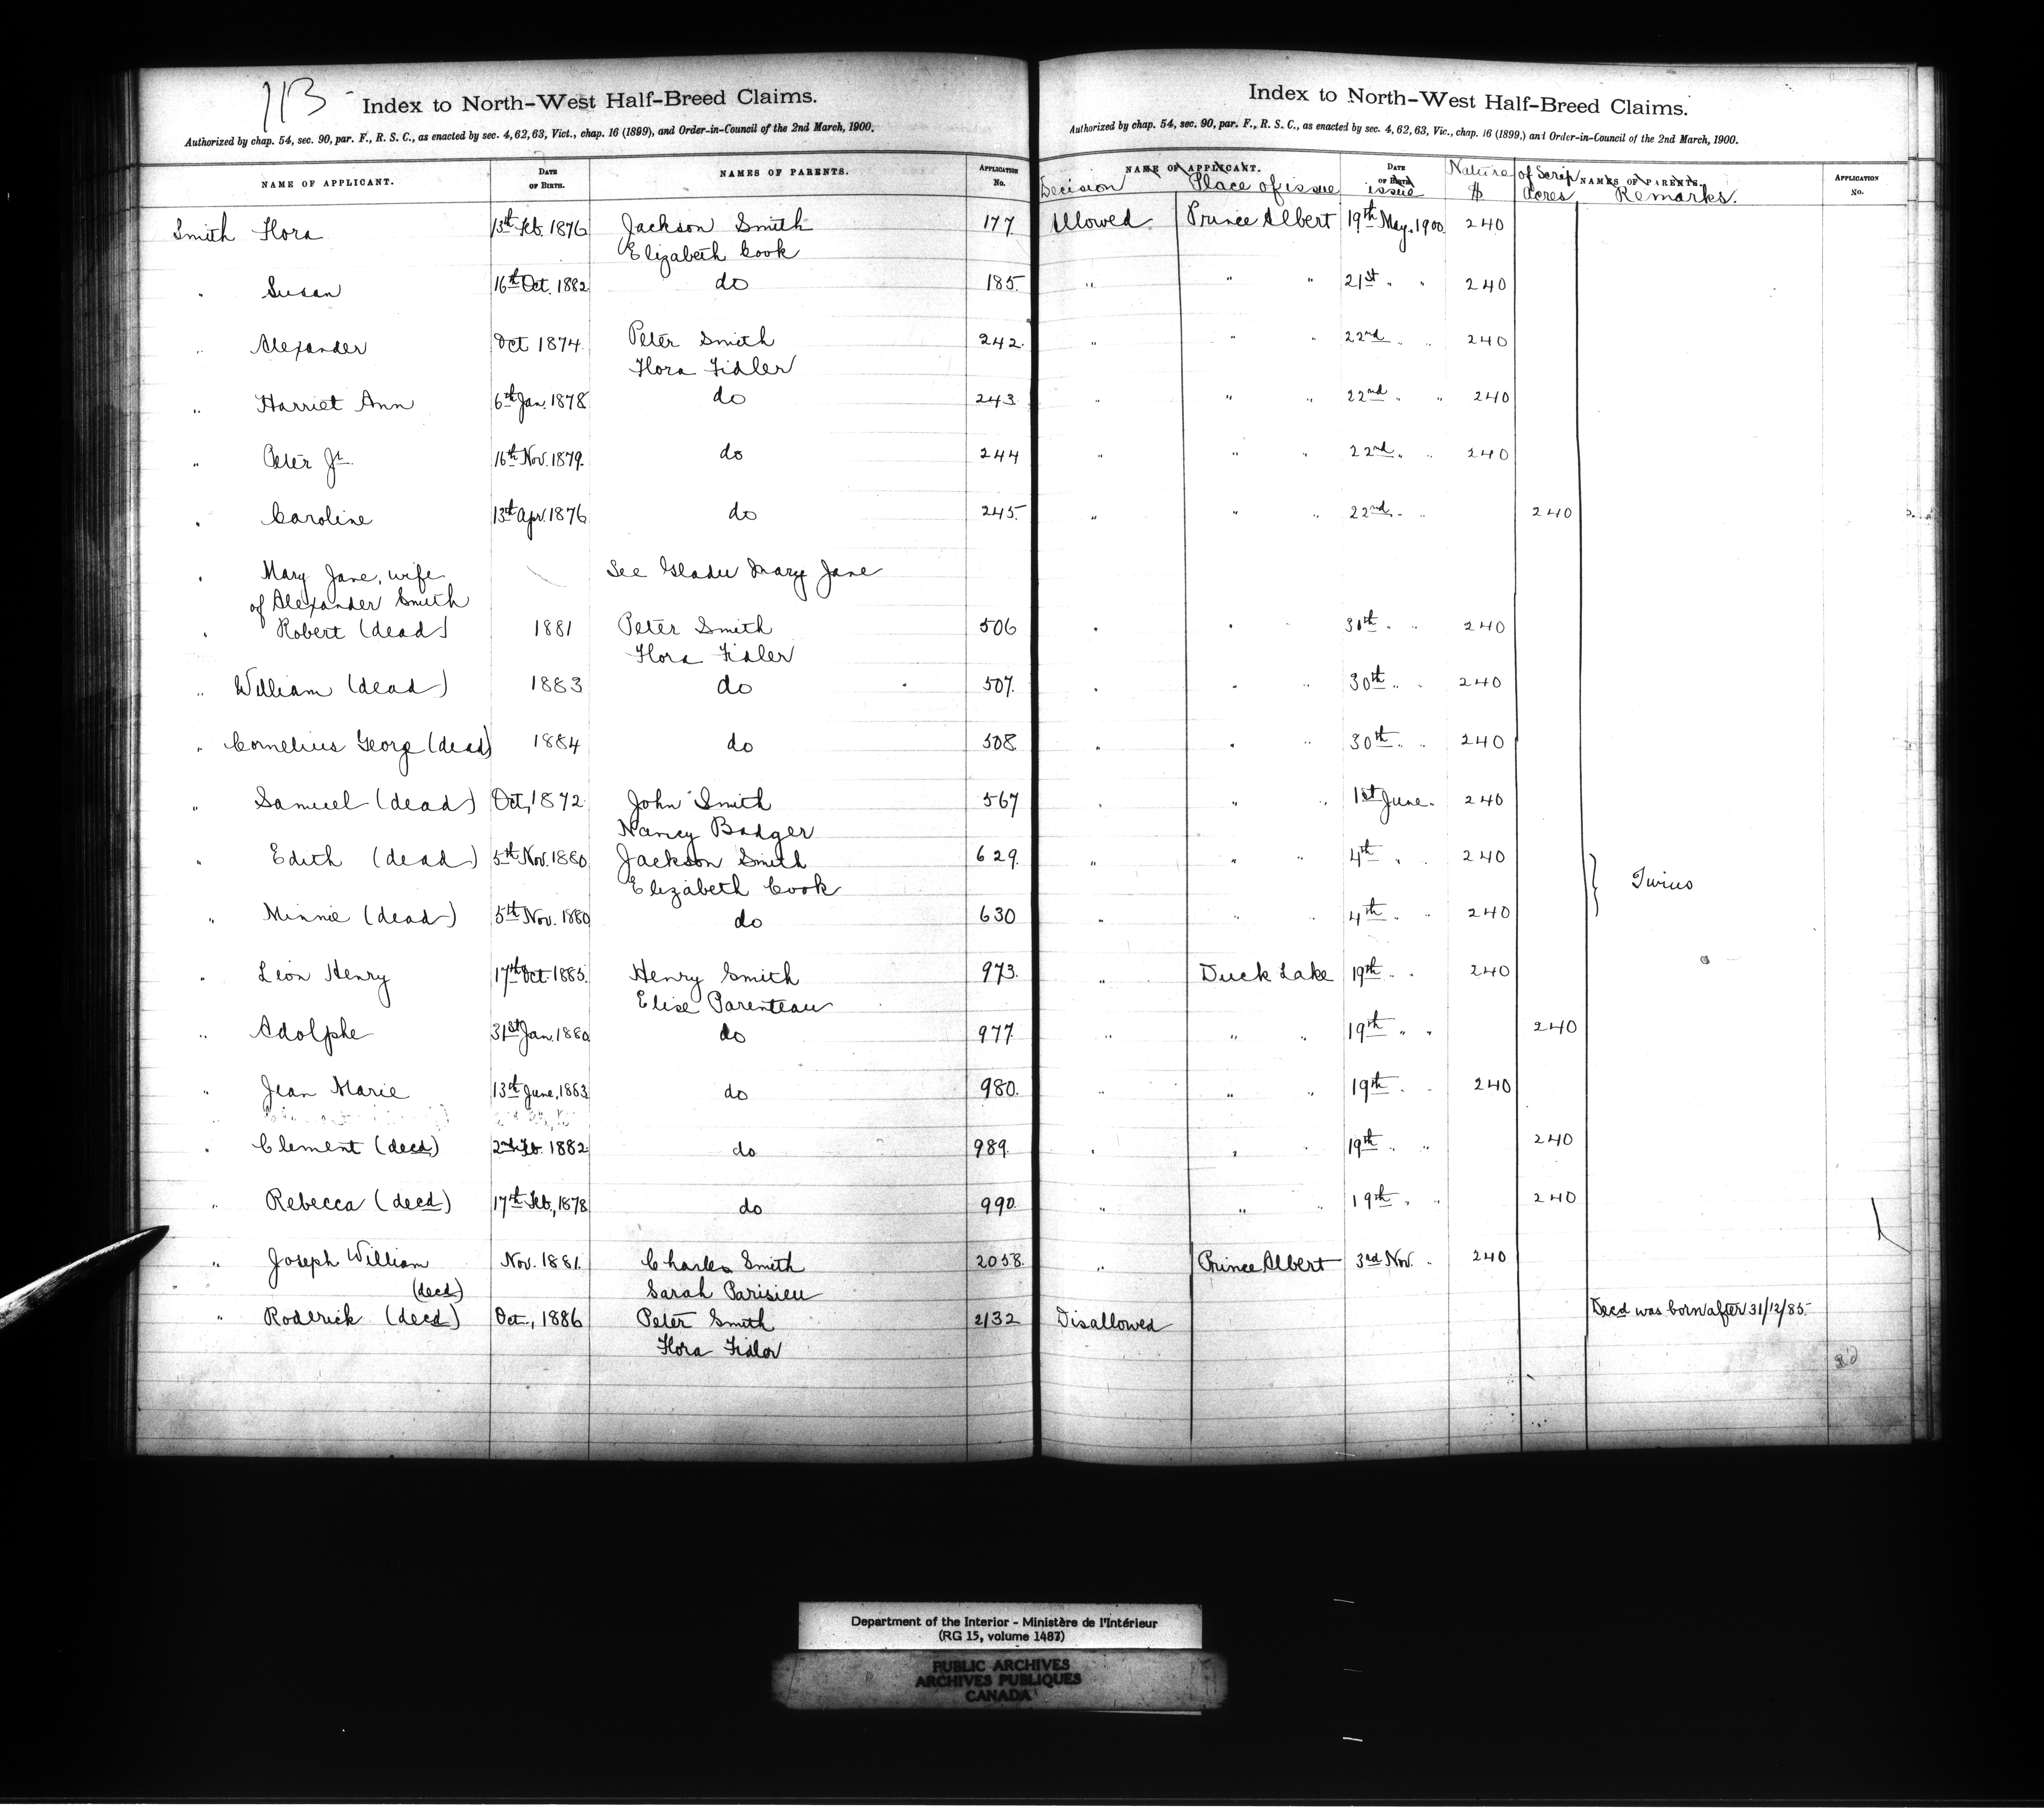 113 -
Index to North-West Half-Breed Claims.
Authorized by chap. 54, sec. 90, par. F., R. S. C., as enacted by sec. 4, 62, 63, Vict., chap. 16 (1899), and Order-in-Council of the 2nd March, 1900.
NAME OF APPLICANT. DATE OF BIRTH. NAMES OF PARENTS. APPLICATION No.
Index to North-West Half-Breed Claims.
Authorized by chap. 54, sec. 90, par. F., R. S. C., as enacted by sec. 4, 62, 63, Vic., chap. 16 (1899,) and Order-in-Council of the 2nd March, 1900.
NAME OF APPLICANT. DATE OF BIRTH NAMES OF PARENTS. APPLICATION No.
Decision Place of issue issue Nature of Scrip $ Acres Remarks.
Smith Flora 13th Feb. 1876 Jackson Smith 177 Allowed Prince Albert 19th May. 1900 240
Elizabeth Cook
" Susan 16th Oct. 1882 do 185 " " " 21st " " 240
" Alexander Oct 1874 Peter Smith 242 " " " 22nd " " 240
Flora Fidler
" Harriet Ann 6th Jan. 1878 do 243 " " " 22nd " " 240
" Peter Jr. 16th Nov. 1879. do 244 " " " 22nd " " 240
" Caroline 13th Apr. 1876 do 245 " " " 22nd " " 240
" Mary Jane, wife See Gladu Mary Jane
of Alexander Smith
" Robert (dead) 1881 Peter Smith 506 " " " 30th " " 240
Flora Fidler
" William (dead) 1883 do 507 " " " 30th " " 240
" Cornelius Georg (dead) 1884 do 508 " " " 30th " " 240
" Samuel (dead) Oct, 1872 John Smith 567 " " " 1st June " 240
Nancy Badger
" Edith (dead) 5th Nov. 1880 Jackson Smith 629 " " " 4th " " 240
Elizabeth Cook
} Twins
" Minnie (dead) 5th Nov. 1880 do 630 " " " 4th " " 240
" Leon Henry 17th Oct. 1885. Henry Smith 973. " Duck Lake 19th " " 240
Elise Parenteau
" Adolphe 31st Jan. 1880 do 977 " " " 19th " " 240
" Jean Marie 13th June, 1883 do 980. " " " 19th " " 240
" Clement (decd) 2nd Feb. 1882 do 989. " " " 19th " " 240
" Rebecca (decd) 17th Feb., 1878 do 990 " " " 19th " " 240
" Joseph William Nov. 1881. Charles Smith 2058. " Prince Albert 3rd Nov. " 240
(decd) Sarah Parisien
" Roderick (decd) Oct., 1886 Peter Smith 2132 Disallowed Decd was born after 31/12/85-
Flora Fidler
Department of the Interior - Ministère de l'Intérieur
(RG 15, volume 1487)
PUBLIC ARCHIVES
ARCHIVES PUBLIQUES
CANADA